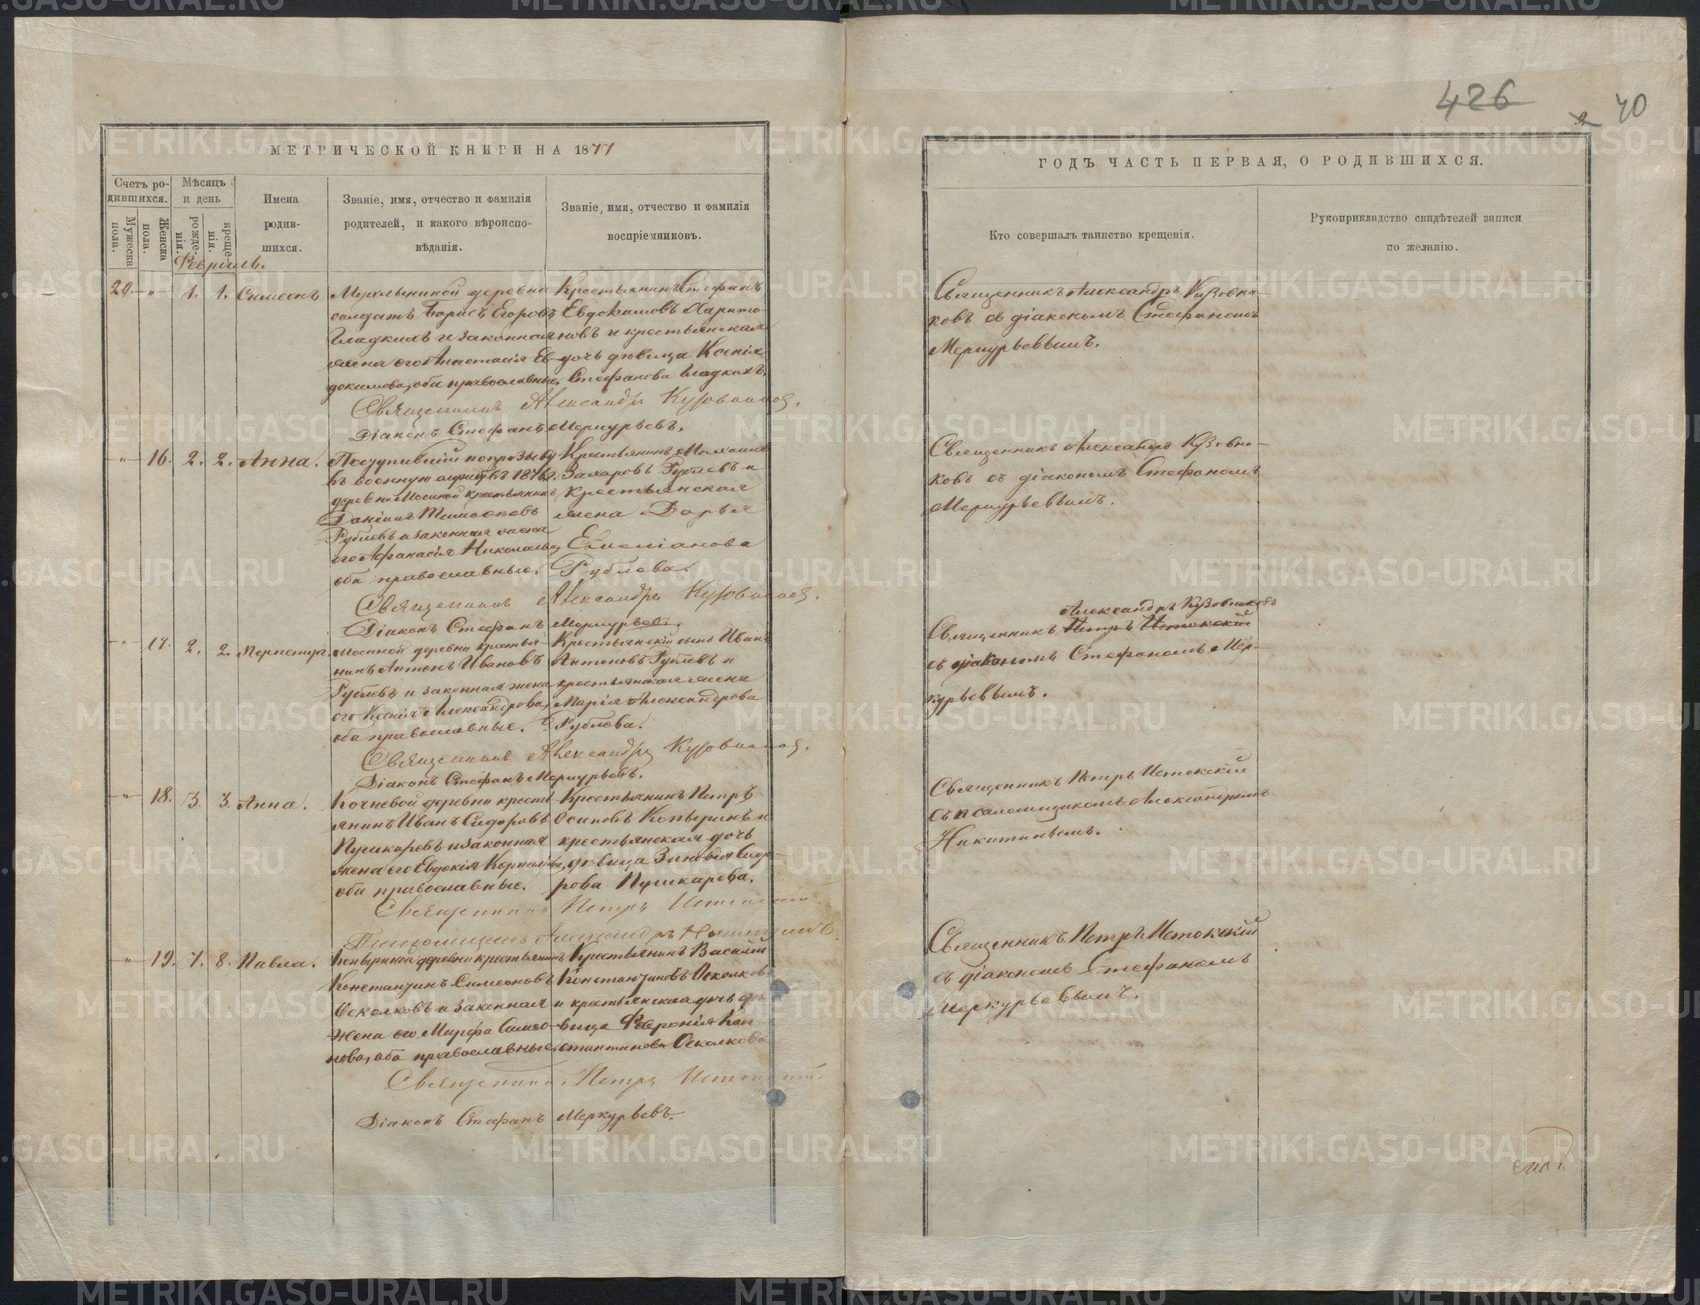 426
40
МЕТРИЧЕСКОЙ КНИГИ НА 1877
ГОДЪ ЧАСТЬ ПЕРВАЯ, О РОДИВШИХСЯ.
Счетъ родившихся.
Мужеска пола.
Женска пола.
Мѣсяцъ и день
рожденія.
крещенія.
Имена
родив-
шихся.
Званіе, имя, отчество и фамилія
родителей, и какого вѣроиспо-
вѣданія.
Званіе, имя, отчество и фамилія
воспріемниковъ.
Кто совершалъ таинство крещенія.
Рукоприкладство свидѣтелей записи
по желанію.
Февраль.
20. 1. 1. Симеонъ
деревни
солдатъ Борисъ Егоровъ
Гладкихъ и законная
жена его Анастасія Ев-
докимова, оба православные.
Крестьянинъ Стефанъ
Евдокимовъ Харито-
новъ и крестьянская
дочь дѣвица Ксенія
Стефанова Гладкихъ.
Священникъ Александръ Кузовни-
ковъ съ діакономъ Стефаномъ
Меркурьевымъ.
Священникъ Александръ Кузовниковъ.
Діаконъ Стефанъ Меркурьевъ.
16. 2. 2. Анна.
Поступившій по призыву
въ военную службу въ 1876 г.
деревни Мосиной крестьянинъ
Даніилъ Тимофеевъ
Рублевъ и законная жена
его Афанасія Николаева,
оба православные.
Крестьянинъ
Захаровъ Рублевъ и
крестьянская
жена Дарья
Емеліанова
Рублева.
Священникъ Александръ Кузовни-
ковъ съ діакономъ Стефаномъ
Меркурьевымъ.
Священникъ Александръ Кузовниковъ.
Діаконъ Стефанъ Меркурьевъ.
17. 2. 2.
Мосиной деревни крестья-
нинъ Антонъ Ивановъ
Рублевъ и законная жена
его Ксенія Александрова,
оба православные.
Крестьянскій сынъ Иванъ
Антоновъ Рублевъ и
крестьянская жена
Марія Александрова
Рублева.
Александръ Кузовниковъ
Священникъ Петръ Истокскій
съ діакономъ Стефаномъ Мер-
курьевымъ.
Священникъ Александръ Кузовниковъ.
Діаконъ Стефанъ Меркурьевъ.
18. 3. 3. Анна.
Кочневой деревни кресть-
янинъ Иванъ Сидоровъ
Пушкаревъ и законная
жена его Евдокія Корнилова,
оба православные.
Крестьянинъ Петръ
Осиповъ Копыринъ и
крестьянская дочь
дѣвица Зиновія Сидо-
рова Пушкарева.
Священникъ Петръ Истокскій
съ псаломщикомъ Александромъ
Никитинымъ.
Священникъ Петръ Истокскій.
Псаломщикъ Александръ Никитинъ.
19. 7. 8. Павла.
деревни крестьянинъ
Константинъ Симеоновъ
Осколковъ и законная
жена его Марфа
оба православные.
Крестьянинъ Василій
Константиновъ Осколковъ
и крестьянская дочь дѣ-
вица Февронія Кон-
стантинова Осколкова
Священникъ Петръ Истокскій
съ діакономъ Стефаномъ
Меркурьевымъ.
Священникъ Петръ Истокскій.
Діаконъ Стефанъ Меркурьевъ.
METRIKI.GASO-URAL.RU